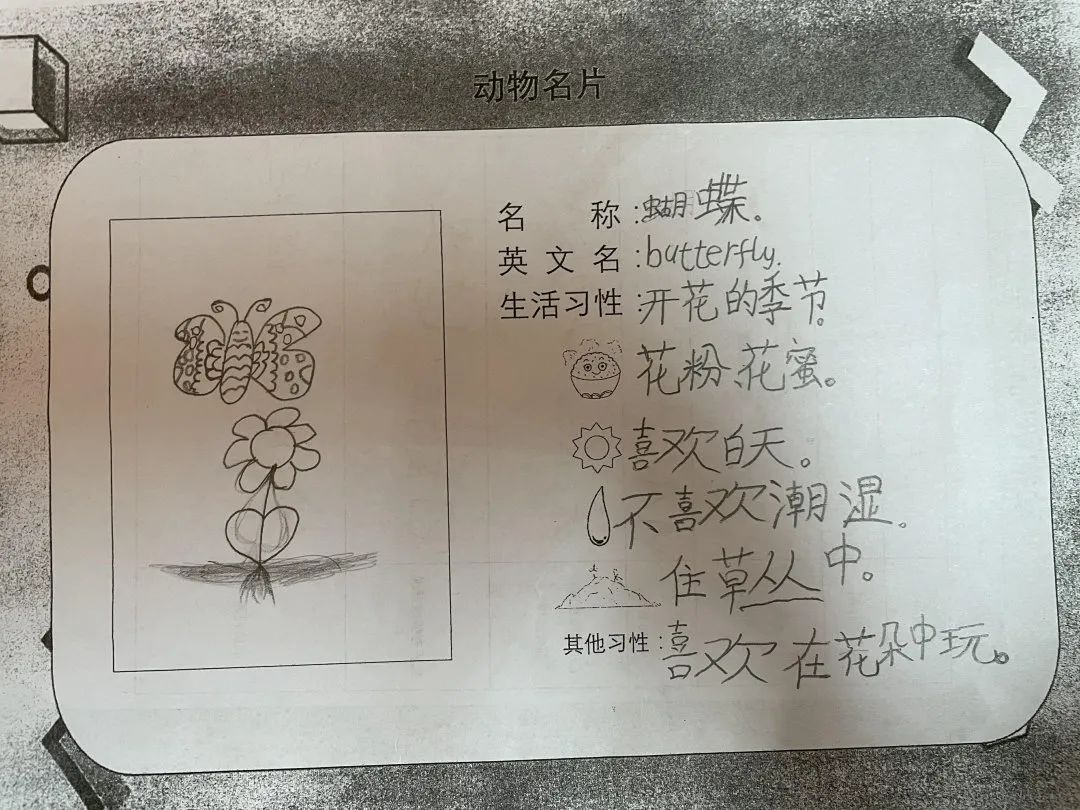 动物名片
名 称：蝴蝶。
英文名：butterfly.
生活习性：开花的季节。
花粉、花蜜。
喜欢白天。
不喜欢潮湿。
住草丛中。
其他习性：喜欢在花朵中玩。